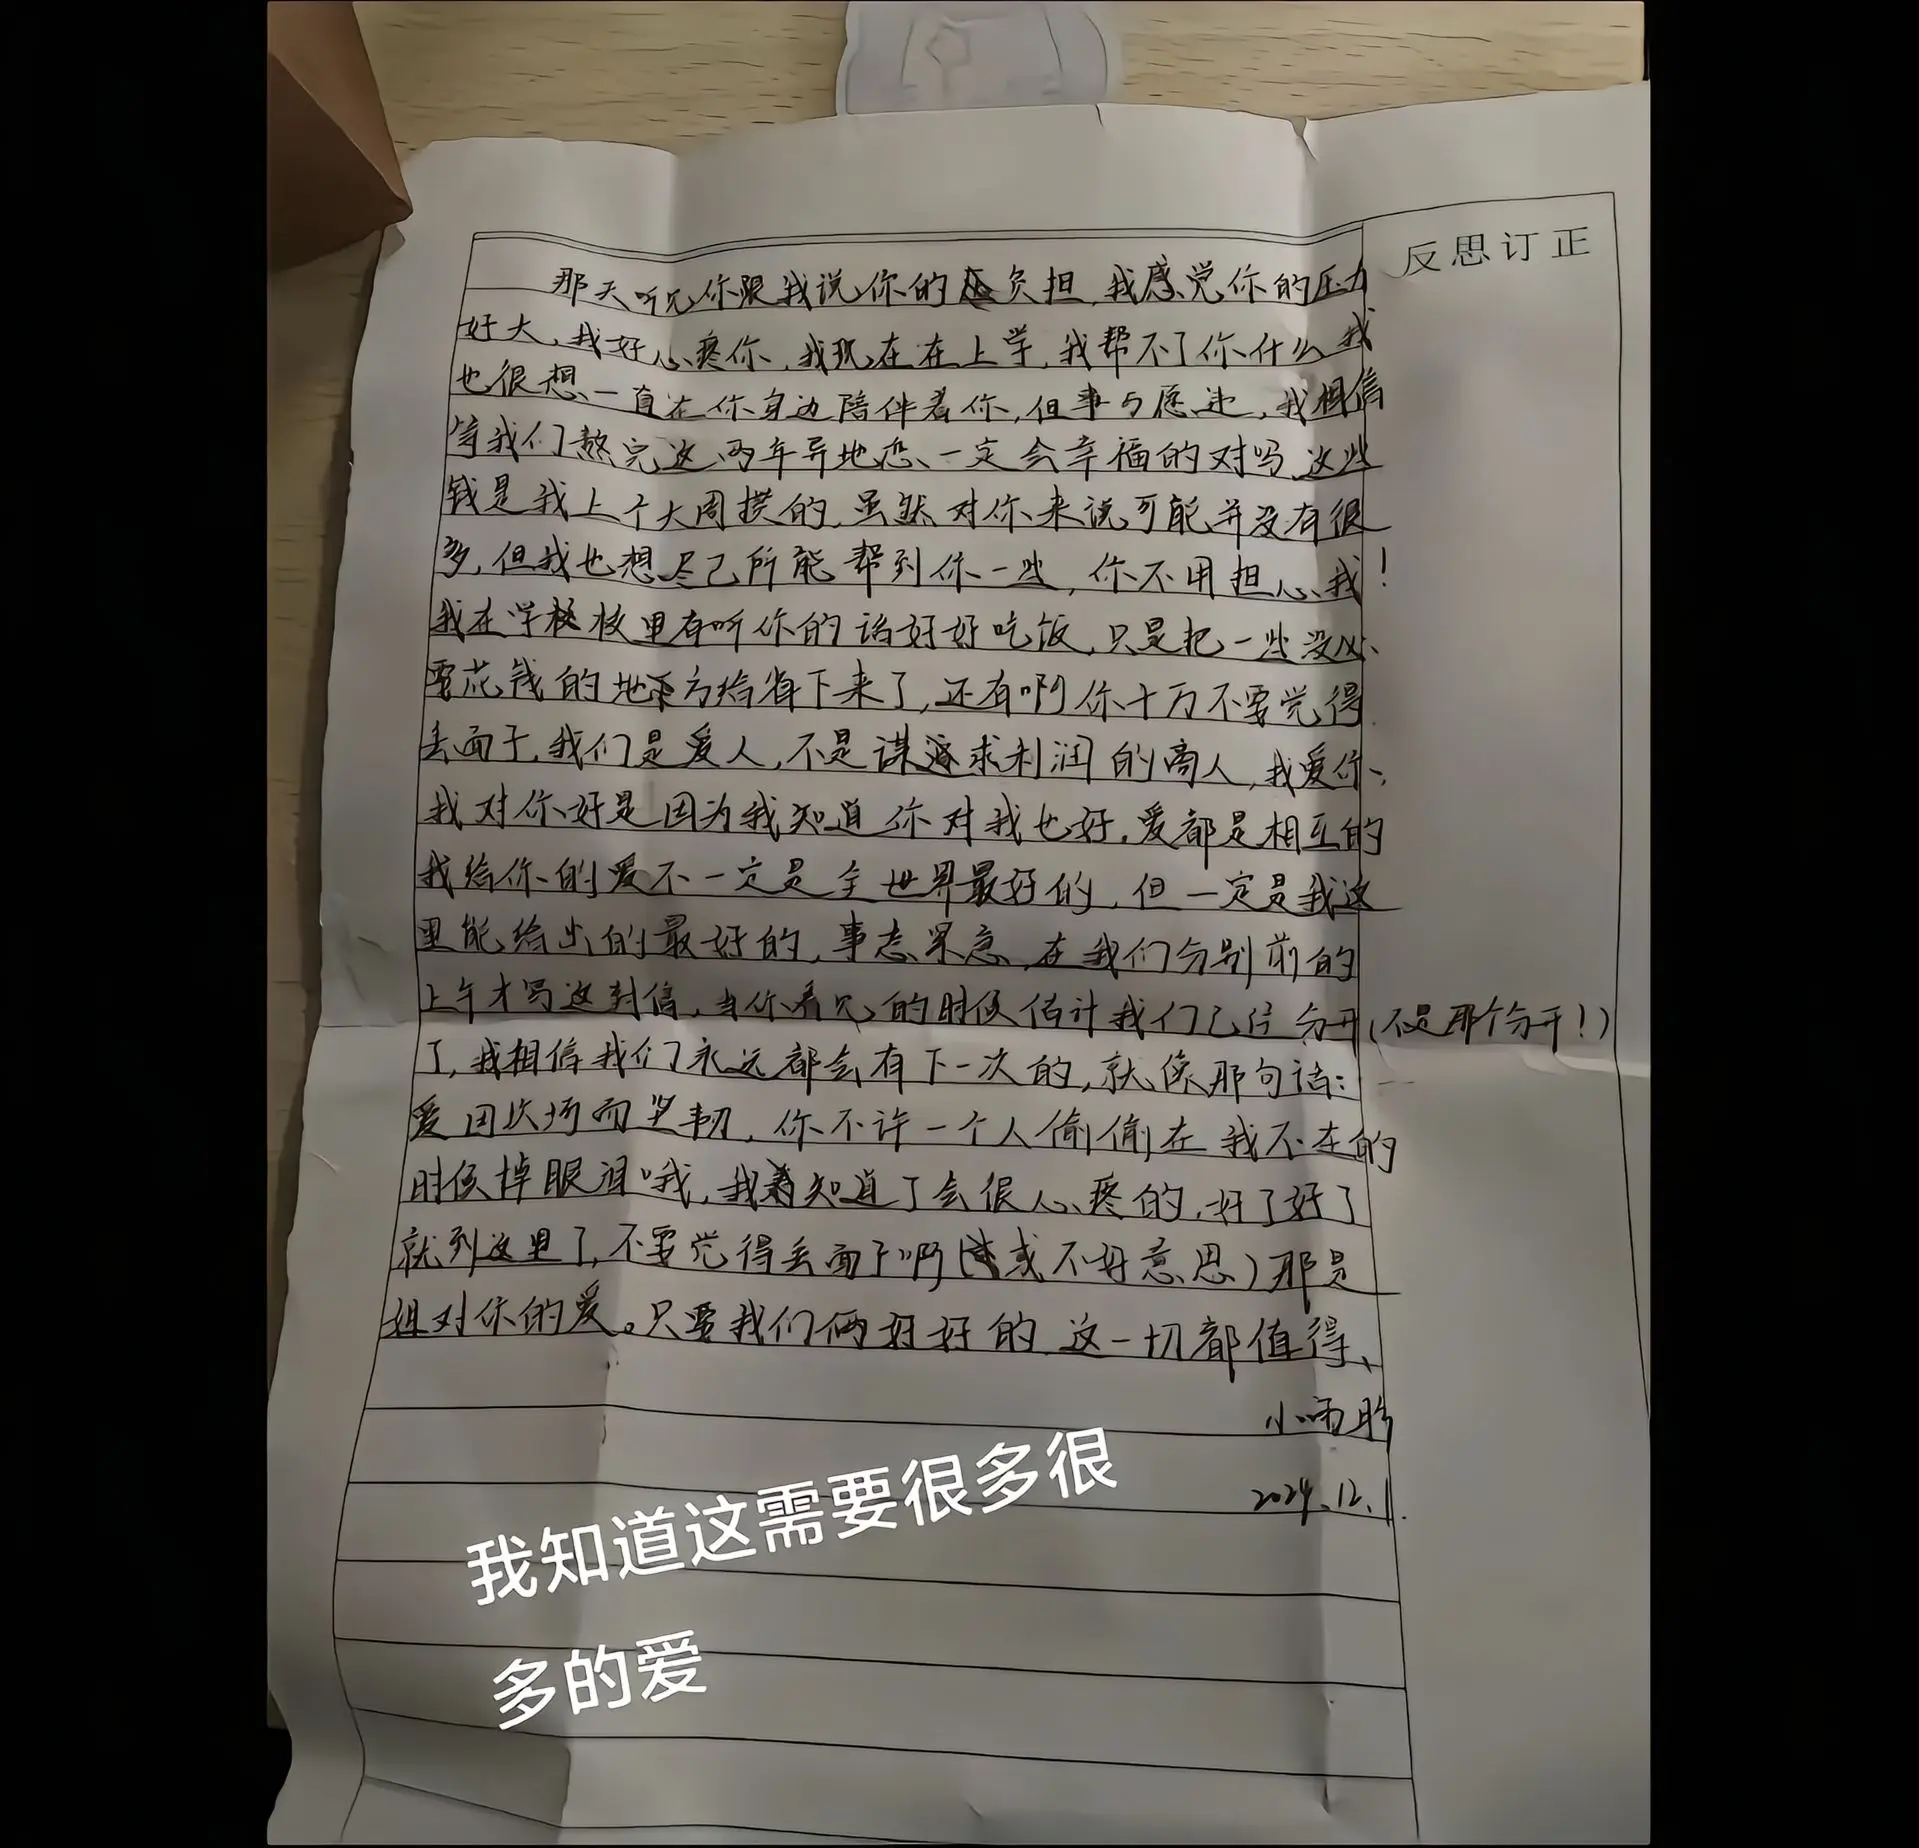 反思订正
那天听见你跟我说你的负担,我感觉你的压力
好大,我好心疼你,我现在在上学,我帮不了你什么我
也很想一直在你身边陪伴着你,但事与愿违,我相信
等我们熬完这两年异地恋一定会幸福的对吗,这些
钱是我上个大周攒的,虽然对你来说可能并没有很
多,但我也想尽己所能帮到你一些,你不用担心我!
我在学校里有听你的话好好吃饭,只是把一些没必
要花钱的地方给省下来了,还有啊你千万不要觉得
丢面子,我们是爱人,不是谋求利润的商人,我爱你、
我对你好是因为我知道你对我也好,爱都是相互的
我给你的爱不一定是全世界最好的,但一定是我这
里能给出的最好的,事态紧急,在我们分别前的
上午才写这封信,当你看见的时候估计我们已经分开(不是那个分开!)
了,我相信我们永远都会有下一次的,就像那句话:
爱因 而坚韧,你不许一个人偷偷在我不在的
时候掉眼泪哦,我知道了会很心疼的,好了好了
就到这里了,不要觉得丢面子啊(或不好意思)那是
姐对你的爱。只要我们俩好好的这一切都值得、
小雨
2024.12.1
我知道这需要很多很
多的爱